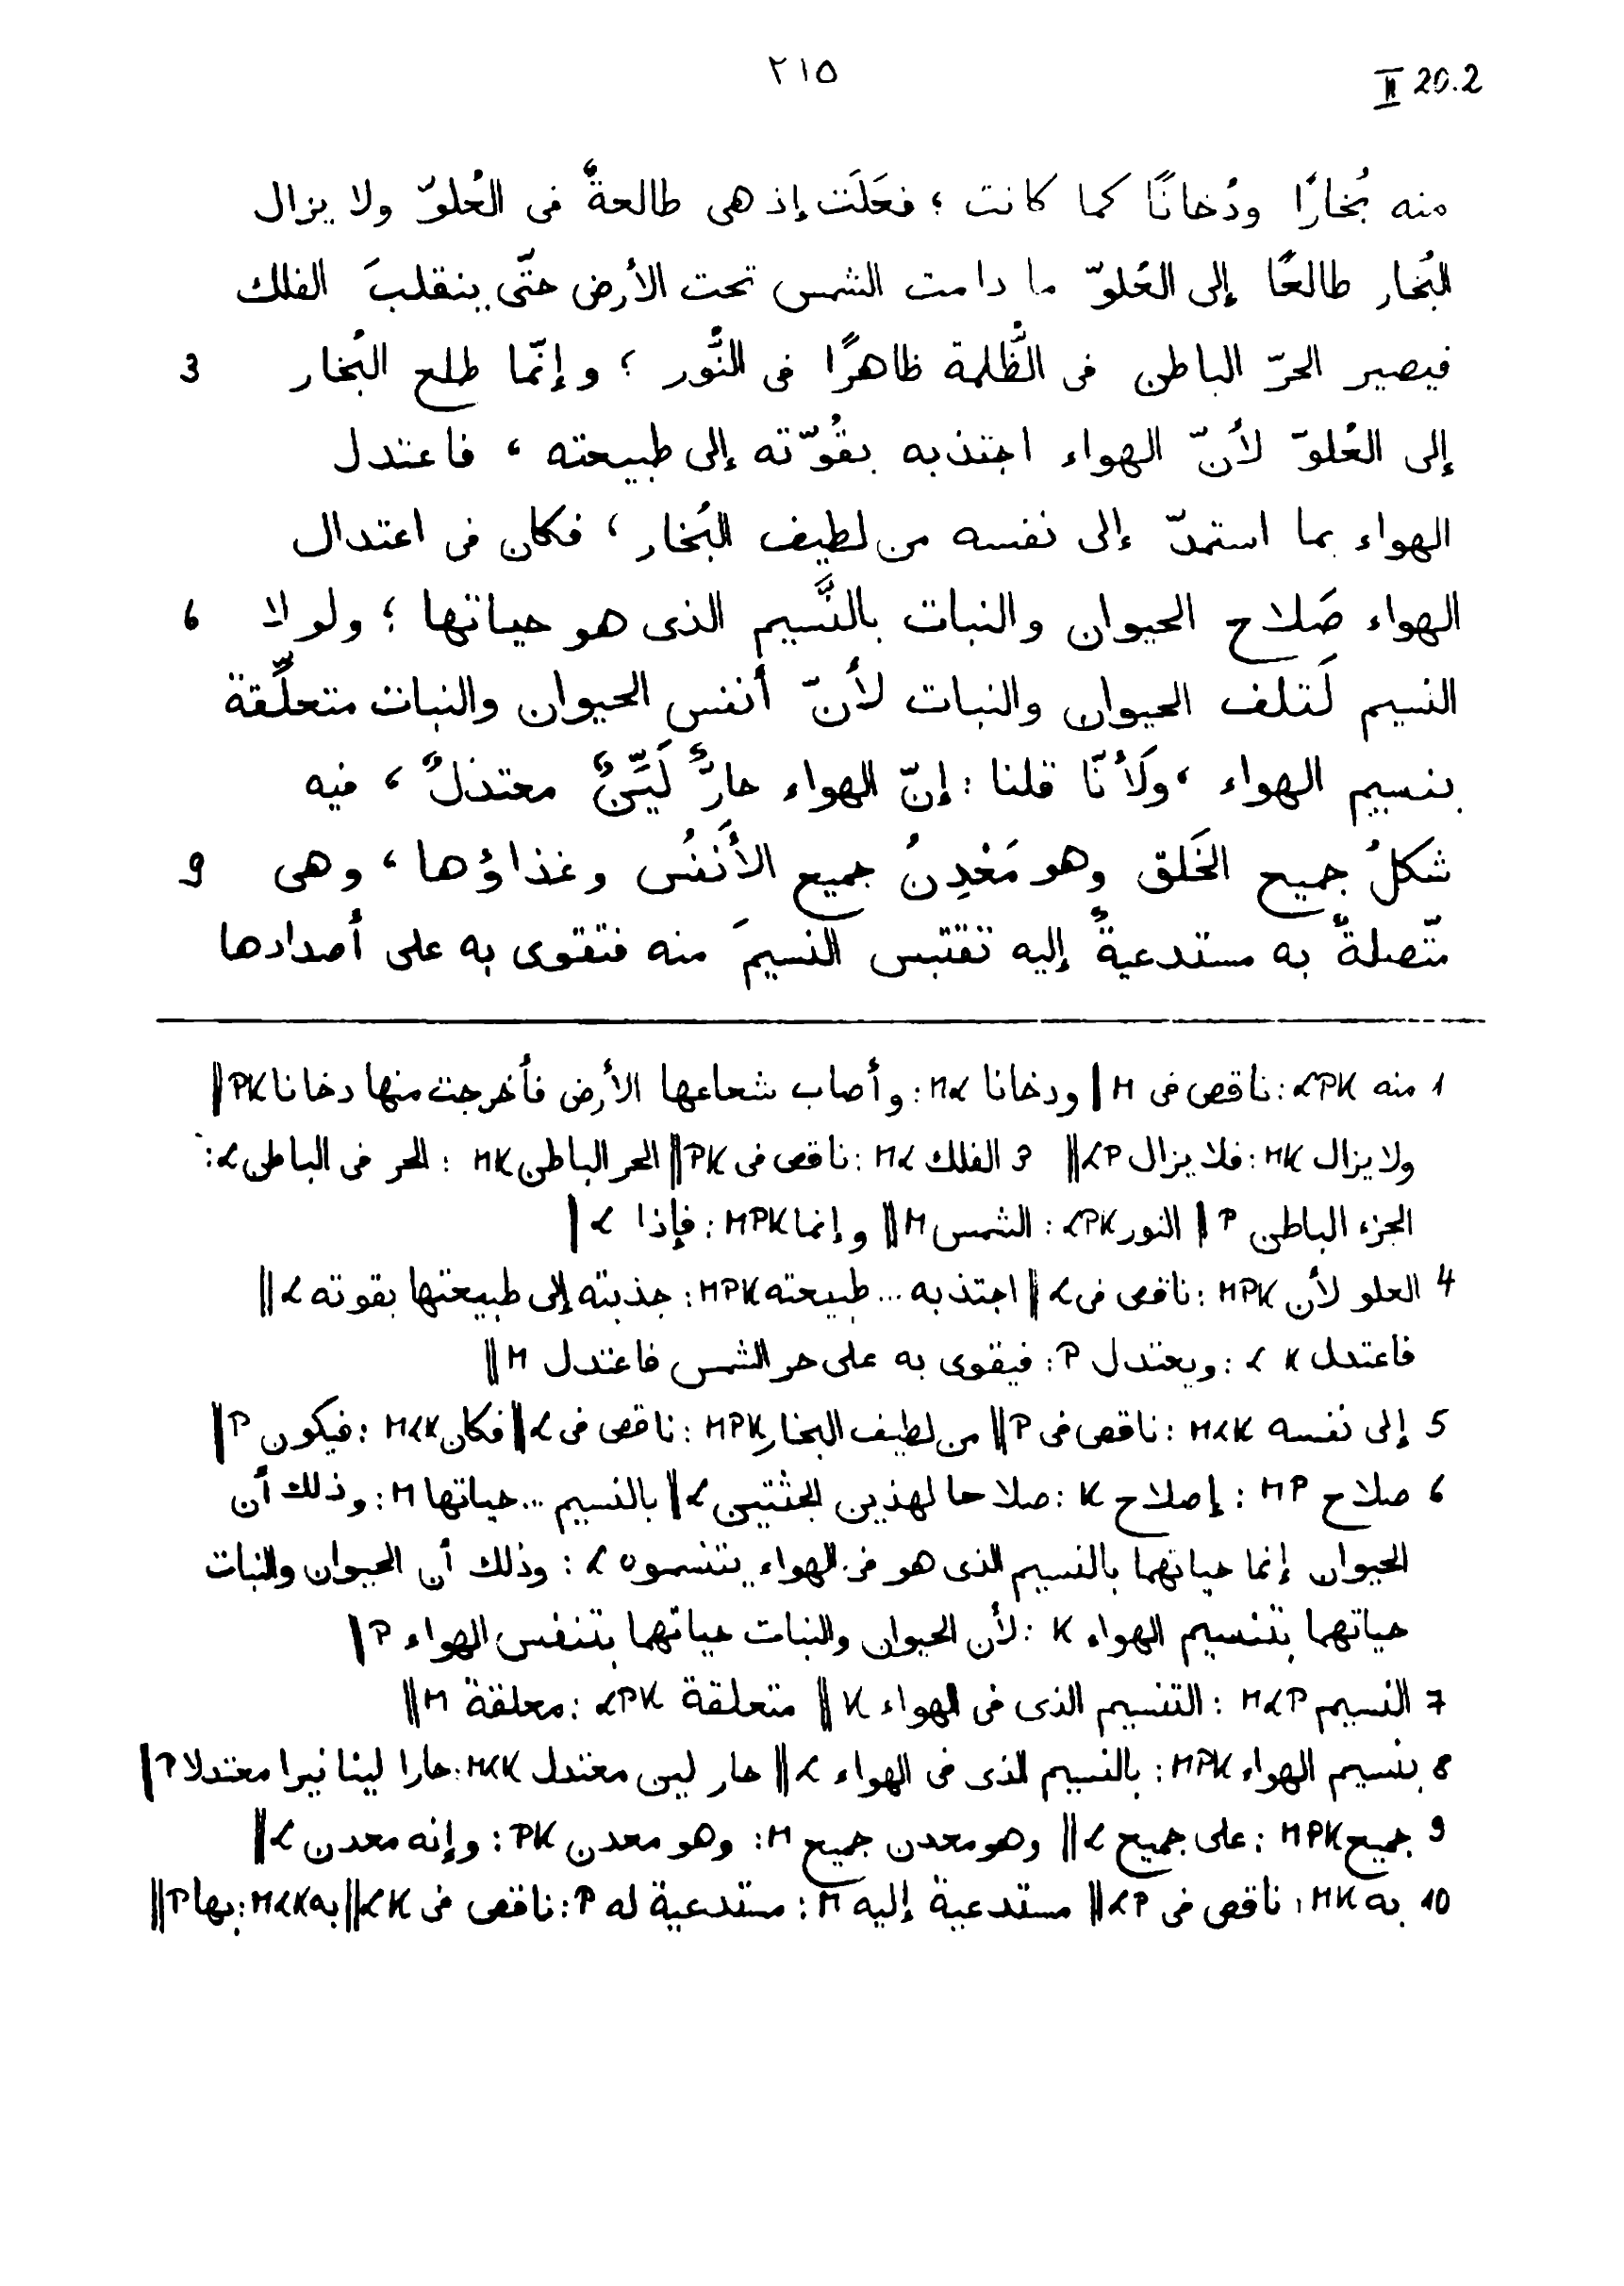 ٢١٥
II 20.2
منه بُخارًا ودُخانًا كما كانت ؛ فعَلَت إذ هى طالعةٌ فى العُلوّ ولا يزال
البُخار طالعًا إلى العُلوّ ما دامت الشمس تحت الأرض حتّى ينقلبَ الفلك
فيصير الحرّ الباطن فى الظُّلمة ظاهرًا فى النُّور ؛ وإنّما طلع البُخار 3
إلى العُلوّ لأنّ الهواء اجتذبه بقُوّته إلى طبيعته ، فاعتدل
الهواء بما استمدّ إلى نفسه من لطيف البُخار ، فكان فى اعتدال
الهواء صَلاح الحيوان والنبات بالنَّسيم الذى هو حياتها ؛ ولولا 6
النسيم لَتلف الحيوان والنبات لأنّ أنفس الحيوان والنبات متعلّقة
بنسيم الهواء ، ولَأنّا قلنا : إنّ الهواء حارٌّ لَيّنٌ معتدلٌ ، فيه
شكلُ جميع الخَلق وهو مَعْدِنُ جميع الأَنفُس وغذاؤها ، وهى 9
متّصلةٌ به مستدعيةٌ إليه تقتبس النسيمَ منه فتقوى به على أضدادها
1 منه LPK : ناقص فى M | ودخانا ML : وأصاب شعاعها الأرض فأخرجت منها دخانا PK ||
ولا يزال MK : فلا يزال LP || 3 الفلك ML : ناقص فى PK || الحر الباطن MK : الحر فى الباطن L :
الجزء الباطن P | النور LPK : الشمس M || وإنما MPK : فإذا L |
4 العلو لأن MPK : ناقص فى L || اجتذبه ... طبيعته MPK : جذبته إلى طبيعتها بقوته L ||
فاعتدل K L : ويعتدل P : فيقوى به على حر الشمس فاعتدل M ||
5 إلى نفسه MLK : ناقص فى P || من لطيف البخار MPK : ناقص فى L || فكان MLK : فيكون P |
6 صلاح MP : إصلاح K : صلاحا لهذين الجثتين L || بالنسيم ... حياتها M : وذلك أن
الحيوان إنما حياتهما بالنسيم الذى هو فى الهواء يتنسموه L : وذلك أن الحيوان والنبات
حياتهما بتنسيم الهواء K : لأن الحيوان والنبات حياتهما بتنفس الهواء P |
7 النسيم MLP : التنسيم الذى فى الهواء K || متعلقة LPK : معلقة M ||
8 بنسيم الهواء MPK : بالنسيم الذى فى الهواء L || حار لين معتدل MLK : حارا لينا نيرا معتدلا P |
9 جميع MPK : على جميع L || وهو معدن جميع M : وهو معدن PK : وإنه معدن L ||
10 به MK : ناقص فى LP || مستدعية إليه M : مستدعية له P : ناقص فى LK || به MLK : بها P ||